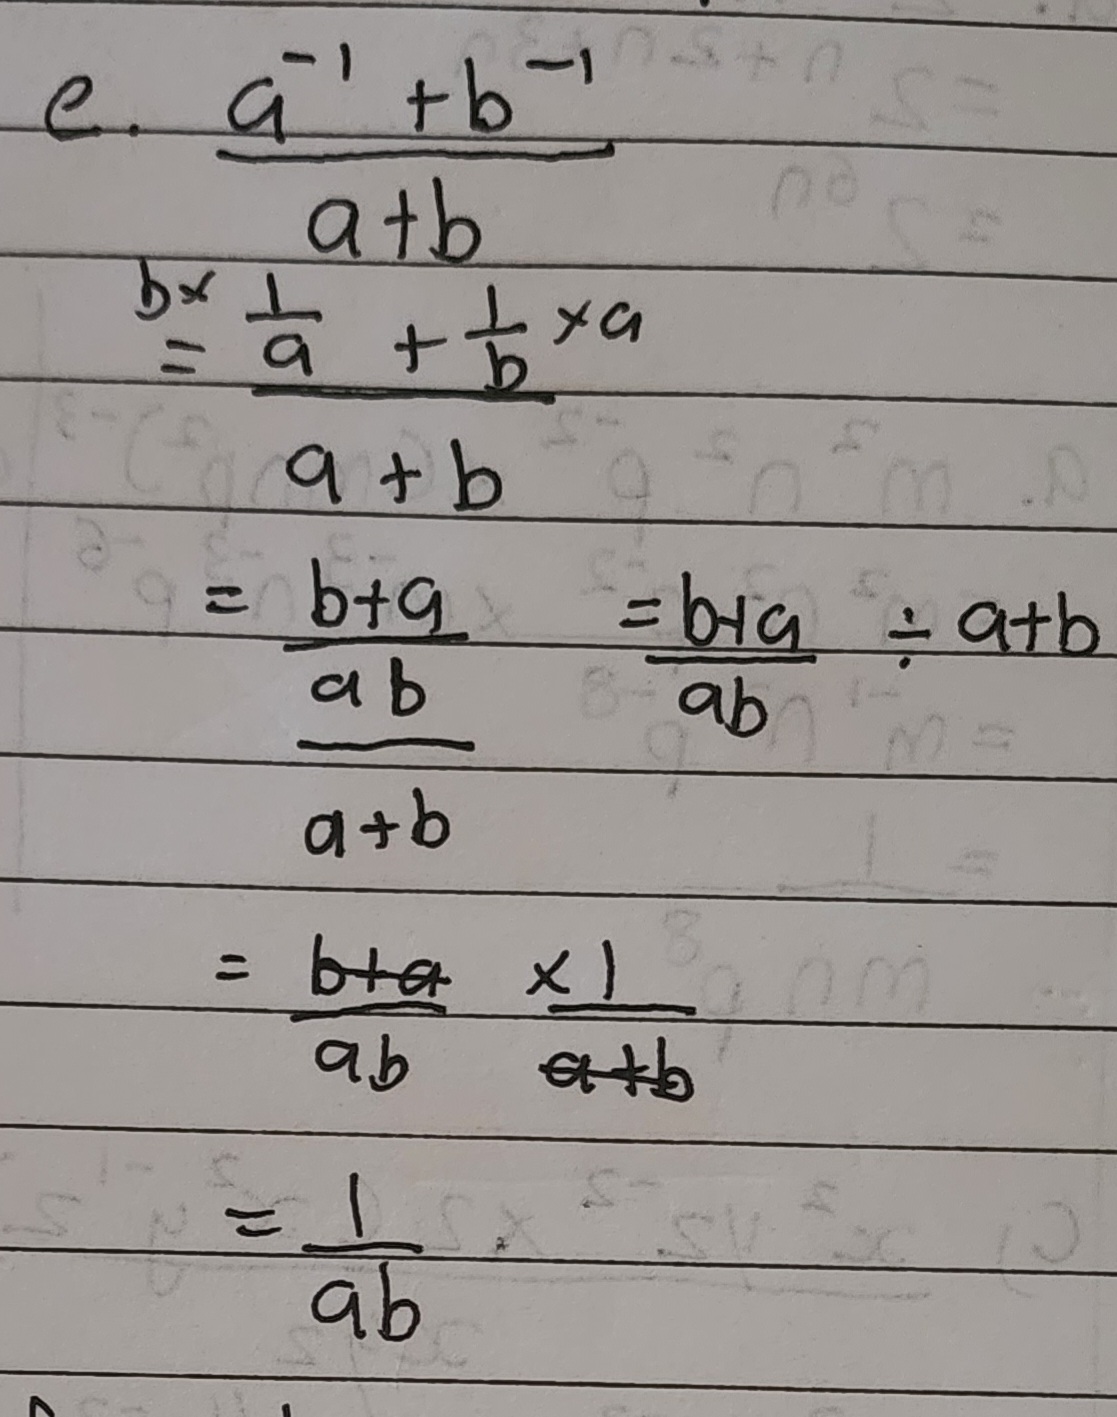 e. a⁻¹ + b⁻¹
a+b
b× 1/a + 1/b ×a
=
a + b
= b+a = b+a ÷ a+b
ab ab
a+b
= b+a × 1
ab a+b
= 1
ab